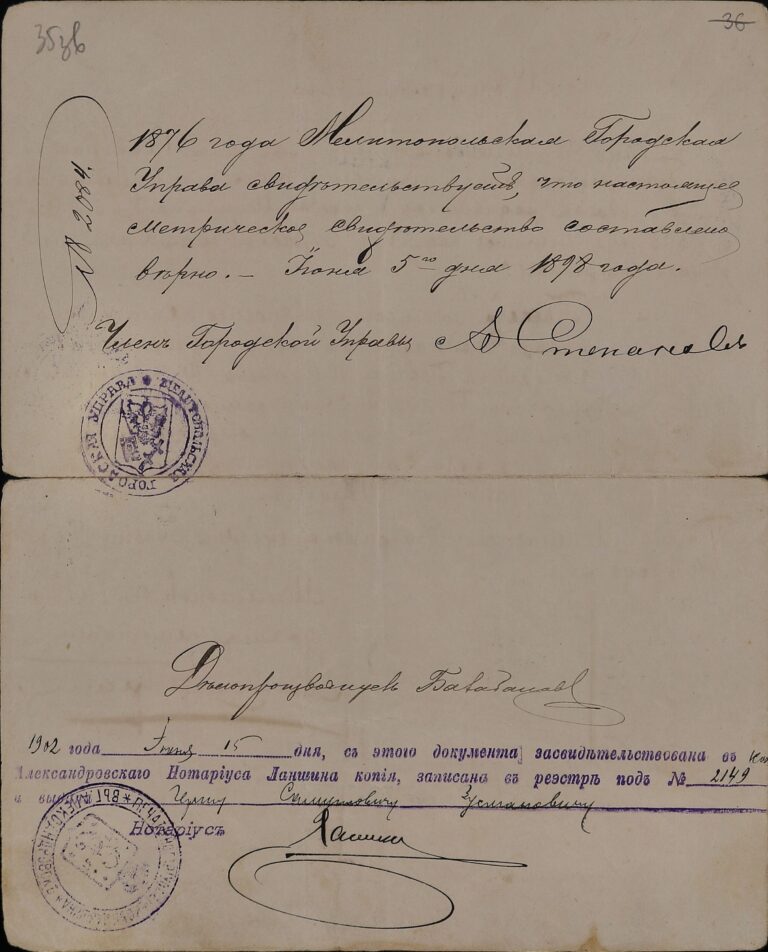 353в
36
№ 2084.
1876 года Мелитопольская Городская
Управа свидѣтельствуетъ, что настоящее
метрическое свидѣтельство составлено
вѣрно. – Іюня 5го дня 1898 года.
Членъ Городской Управы А Степановъ
МЕЛИТОПОЛЬСКАЯ ГОРОДСКАЯ УПРАВА
Дѣлопроизводитель
1902 года Іюня 15 дня, съ этого документа засвидѣтельствована въ
Александровскаго Нотаріуса Ланшина копія, записана въ реэстрѣ подъ № 2149
и выдана Самуиловичу
Нотаріусъ Ланшин